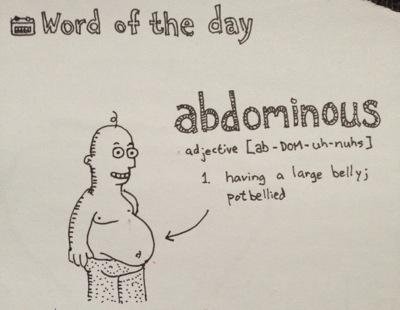 Word of the day
abdominous
adjective [ab-DOM-uh-nuhs]
1. having a large belly;
potbellied